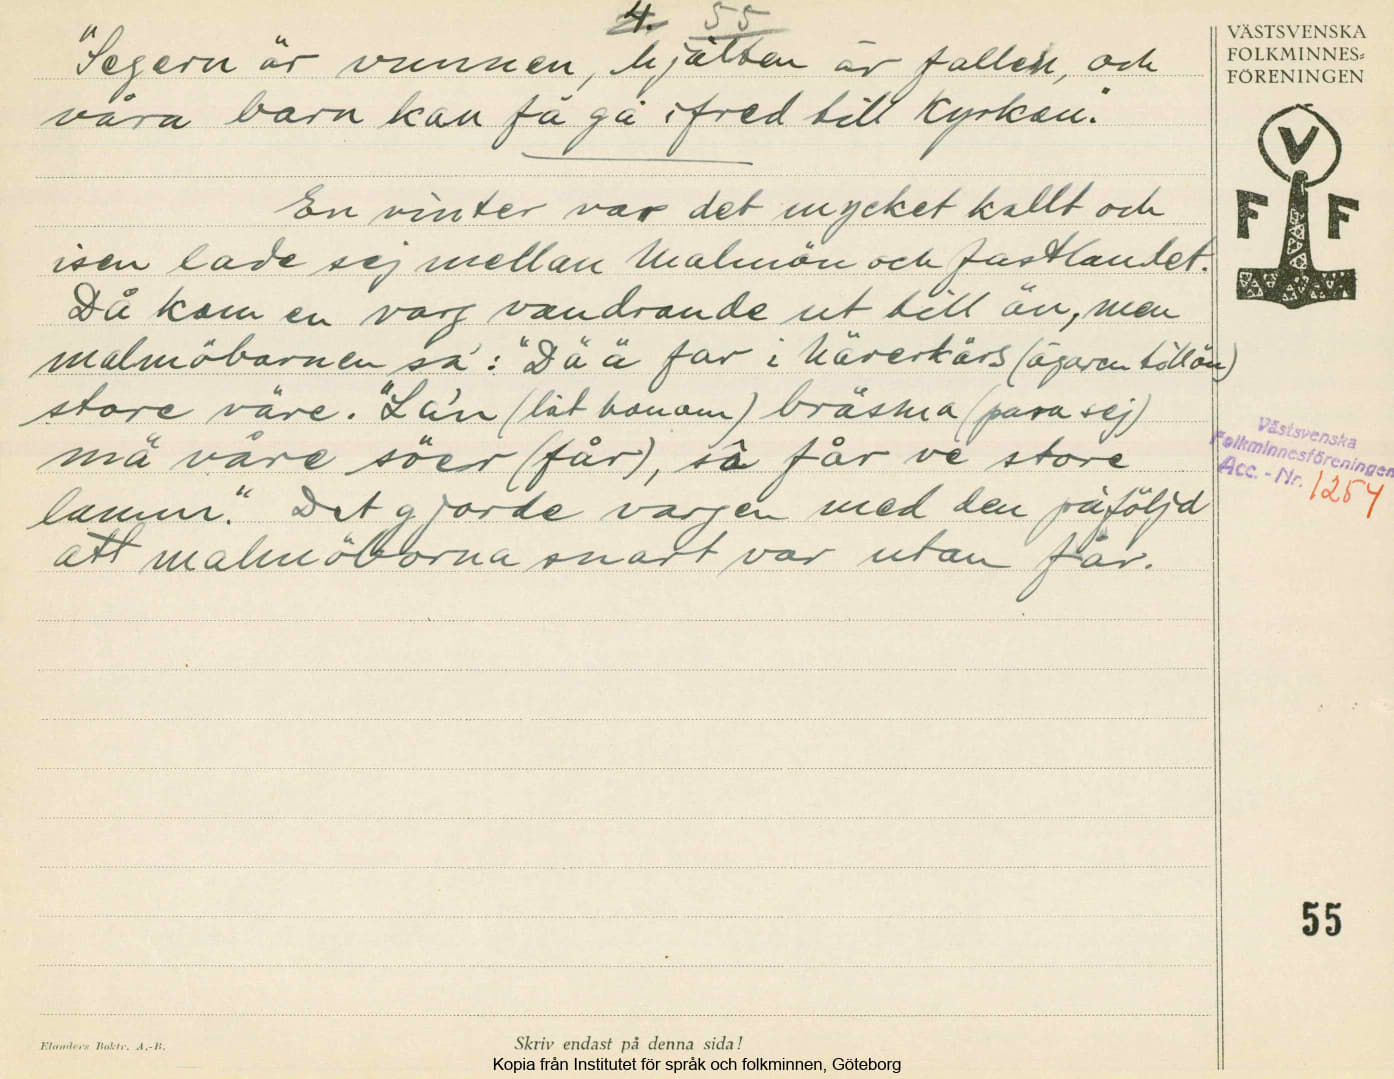 4. 55
"Segern är vunnen, hjälten är fallen, och
våra barn kan få gå i fred till Kyrkan."
En vinter var det mycket kallt och
isen lade sej mellan Malmön och fastlandet.
Då kom en varg vandrande ut till ön, men
malmöbarnen sa': "Dä ä far i
(ägaren till ön)
store våre. "La'n (låt honom) bräsma (para sej)
mä våre söer (får), så får ve store
lamm." Det gjorde vargen med den påföljd
att malmöborna snart var utan får.
VÄSTSVENSKA
FOLKMINNES=
FÖRENINGEN
V
F F
Västsvenska
Folkminnesföreningen
Acc. - Nr. 1254
55
Elanders Boktr. A.-B.
Skriv endast på denna sida!
Kopia från Institutet för språk och folkminnen, Göteborg